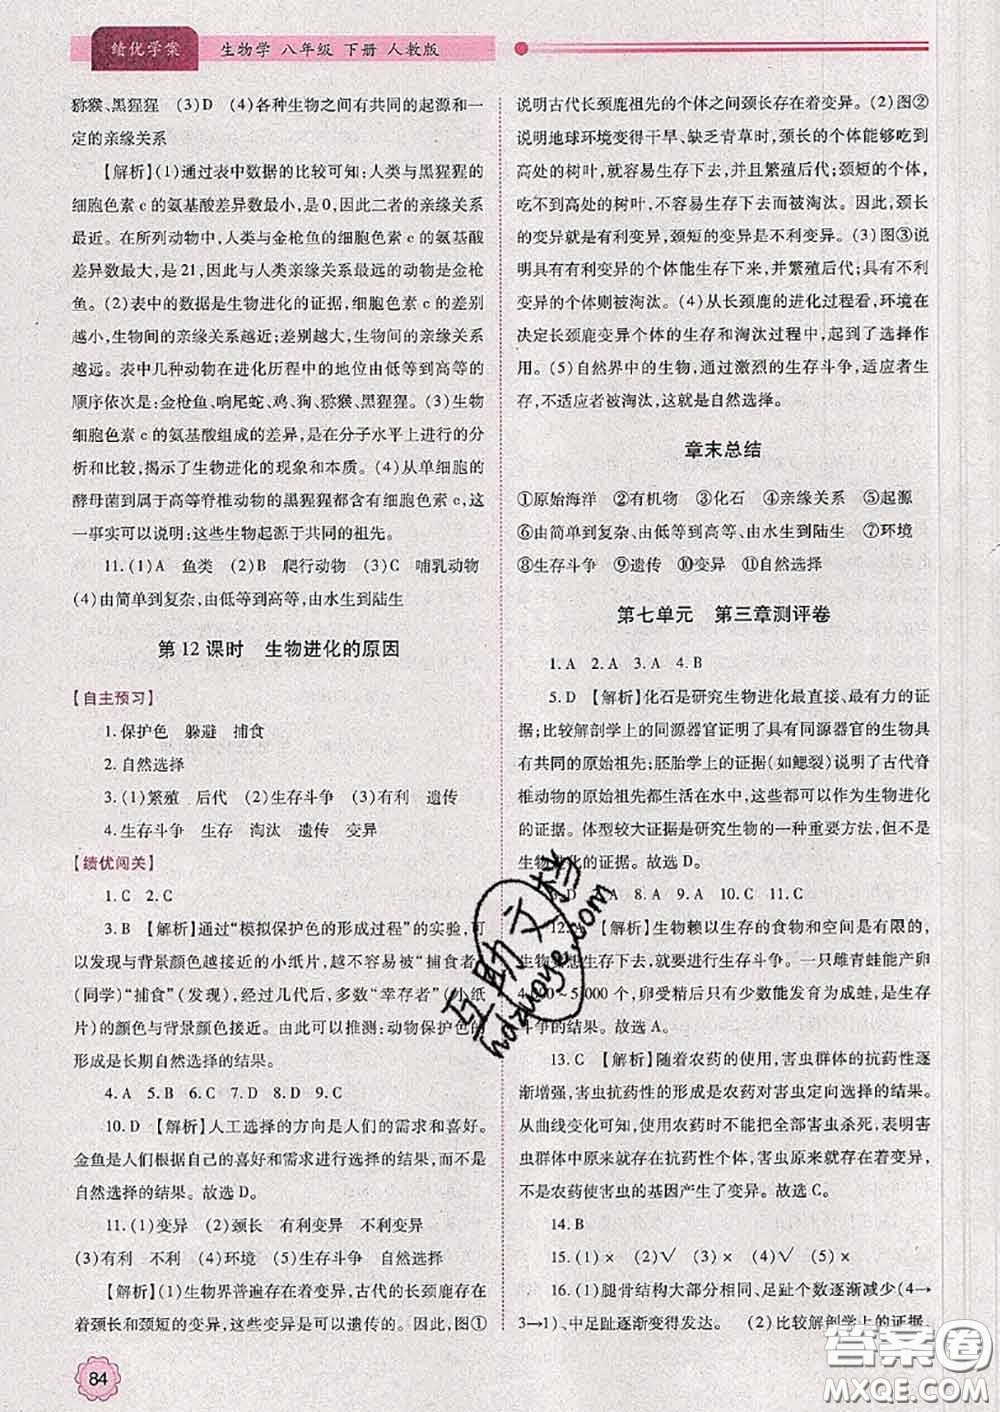 绩优学案 生物学 八年级 下册 人教版
猕猴、黑猩猩 (3)D (4)各种生物之间有共同的起源和一
定的亲缘关系
【解析】(1)通过表中数据的比较可知:人类与黑猩猩的
细胞色素c的氨基酸差异数最小,是0,因此二者的亲缘关系
最近。在所列动物中,人类与金枪鱼的细胞色素c的氨基酸
差异数最多,是21,因此与人类亲缘关系最远的动物是金枪
鱼。(2)表中的数据是生物进化的证据,细胞色素c的差别
越小,生物间的亲缘关系越近;差别越大,生物间的亲缘关系
越远。表中几种动物在进化历程中的地位由低等到高等的
顺序依次是:金枪鱼、响尾蛇、鸡、狗、猕猴、黑猩猩。(3)生物
细胞色素c的氨基酸组成的差异,是在分子水平上进行的分
析和比较,揭示了生物进化的现象和本质。(4)从单细胞的
酵母菌到属于高等脊椎动物的黑猩猩都含有细胞色素c,这
一事实可以说明:这些生物起源于共同的祖先。
11.(1)A 鱼类 (2)B 爬行动物 (3)C 哺乳动物
(4)由简单到复杂,由低等到高等,由水生到陆生
第12课时 生物进化的原因
【自主预习】
1.保护色 躲避 捕食
2.自然选择
3.(1)繁殖 后代 (2)生存斗争 (3)有利 遗传
4.生存斗争 生存 淘汰 遗传 变异
【绩优闯关】
1.C 2.C
3.B 【解析】通过“模拟保护色的形成过程”的实验,可
以发现与背景颜色越接近的小纸片,越不容易被“捕食者”
(同学)“捕食”(发现),经过几代后,多数“幸存者”(小纸
片)的颜色与背景颜色接近。由此可以推测:动物保护色的
形成是长期自然选择的结果。
4.A 5.B 6.C 7.B 8.D 9.C
10.D 【解析】人工选择的方向是人们的需求和喜好。
金鱼是人们根据自己的喜好和需求进行选择的结果,而不是
自然选择的结果。故选D。
11.(1)变异 (2)颈长 有利变异 不利变异
(3)有利 不利 (4)环境 (5)生存斗争 自然选择
【解析】(1)生物界普遍存在着变异,古代的长颈鹿存在
着颈长和颈短的变异,这些变异是可以遗传的。因此,图①
84
说明古代长颈鹿祖先的个体之间颈长存在着变异。(2)图②
说明地球环境变得干旱、缺乏青草时,颈长的个体能够吃到
高处的树叶,就容易生存下去,并且繁殖后代;颈短的个体
吃不到高处的树叶,不容易生存下去而被淘汰。因此,颈长
的变异就是有利变异,颈短的变异是不利变异。(3)图③说
明具有有利变异的个体能生存下来,并繁殖后代;具有不利
变异的个体则被淘汰。(4)从长颈鹿的进化过程看,环境在
决定长颈鹿变异个体的生存和淘汰过程中,起到了选择作
用。(5)自然界中的生物,通过激烈的生存斗争,适应者生
存,不适应者被淘汰,这就是自然选择。
章末总结
①原始海洋 ②有机物 ③化石 ④亲缘关系 ⑤起源
⑥由简单到复杂、由低等到高等、由水生到陆生 ⑦环境
⑧生存斗争 ⑨遗传 ⑩变异 ⑪自然选择
第七单元 第三章测评卷
1.A 2.A 3.A 4.B
5.D 【解析】化石是研究生物进化最直接、最有力的证
据;比较解剖学上的同源器官证明了具有同源器官的生物具
有共同的原始祖先;胚胎学上的证据(如鳃裂)说明了古代脊
椎动物的原始祖先都生活在水中,都可以作为生物进化
的证据。体型较大证据是研究生物的一种重要方法,但不是
生物进化的证据。故选D。
A 8.A 9.A 10.C 11.C
12. 【解析】生物赖以生存的食物和空间是有限的,
生物要想生存下去,就要进行生存斗争。一只雌青蛙能产卵
4 000～5 000个,卵受精后只有少数能发育为成蛙,是生存
斗争的结果。故选A。
13.C 【解析】随着农药的使用,害虫群体的抗药性逐
渐增强,害虫抗药性的形成是农药对害虫定向选择的结果。
从曲线变化可知,使用农药时不能把全部害虫杀死,表明
害虫群体中存在抗药性个体,害虫原来就存在着变异,
不是农药使害虫的基因产生了变异。故选C。
14.B
15.(1)× (2)√ (3)× (4)√ (5)×
16.(1)腿骨结构大部分相同、足趾个数逐渐减少(4→
3→1)、中足趾逐渐变得发达。 (2)比较解剖学上的证据。
互助文档
hdzuoye.com
答案圈
MXQE.COM